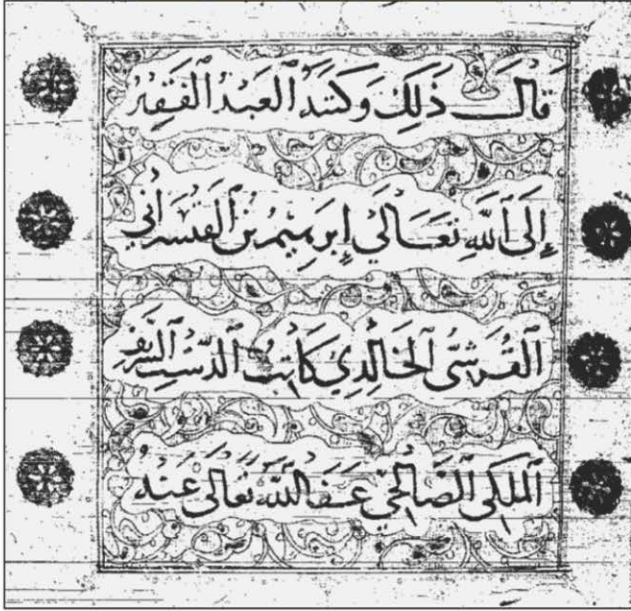 قَالَ ذَلِكَ وَكَتَبَهُ ٱلعَبْدُ ٱلفَقِيرُ
إِلَى ٱللَّهِ تَعَالَى إِبرَهِيمُ بنُ ٱلقَيْسَرَانِي
ٱلقُرَشِيُّ ٱلخَالِدِيُّ كَاتِبُ ٱلدَّسْتِ ٱلشَّرِيفِ
ٱلمَلَكِي ٱلصَّالِحِي عَفَا ٱللَّهُ تَعَالَى عَنهُ